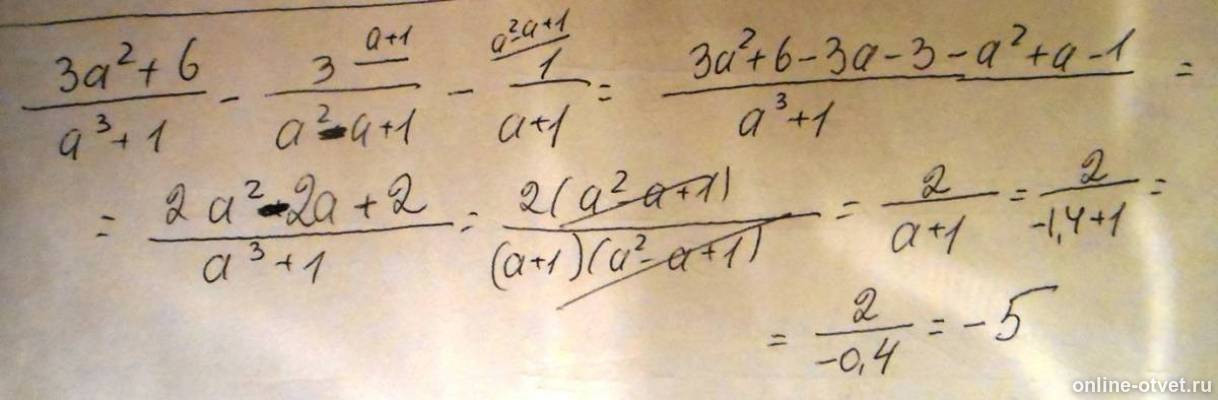 (3a²+6)/(a³+1) - 3 ^(a+1)/(a²-a+1) - 1 ^(a²-a+1)/(a+1) = (3a²+6-3a-3-a²+a-1)/(a³+1) =
= (2a²-2a+2)/(a³+1) = 2(a²-a+1)/((a+1)(a²-a+1)) = 2/(a+1) = 2/(-1,4+1) =
= 2/(-0,4) = -5
online-otvet.ru